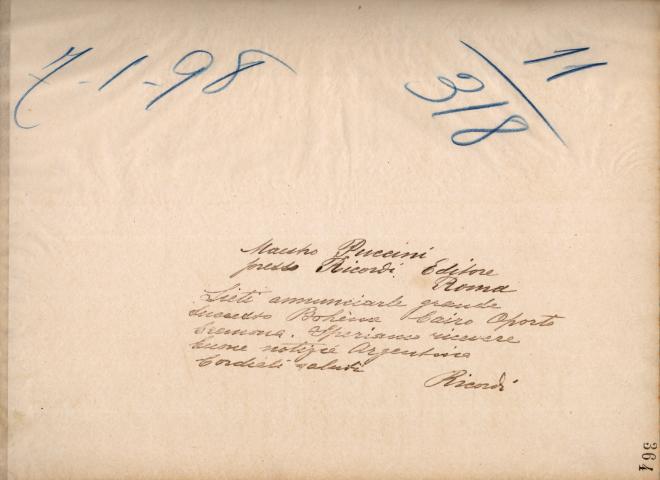 7-1-98
11
318
Maestro Puccini
presso Ricordi Editore
Roma
Lieti annunciarle grande
successo Bohème Cairo Oporto
Cremona. Speriamo ricevere
buone notizie Argentina
Cordiali saluti
Ricordi
364